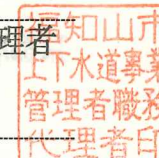 理者
福知山市
上下水道事業
管理者職務
代理者印